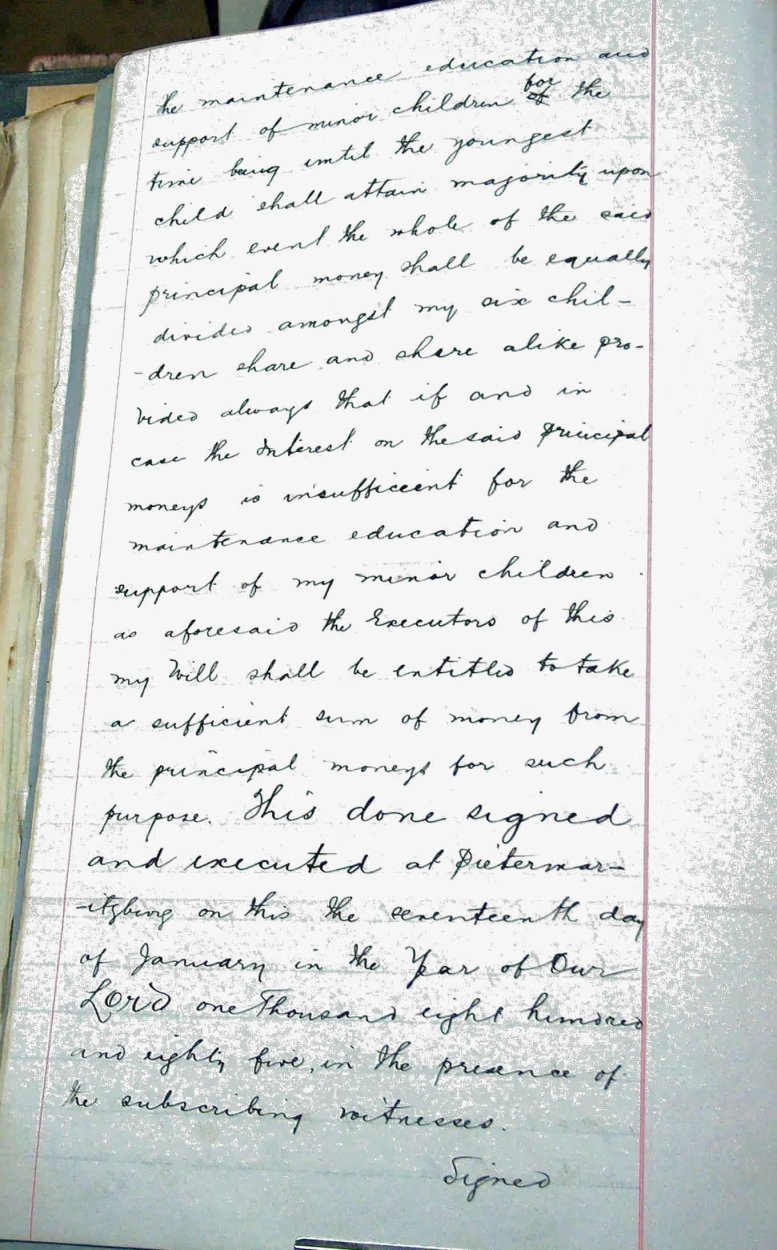 the maintenance education and
support of minor children for of the
time being until the youngest
child shall attain majority upon
which event the whole of the said
principal money shall be equally
divided amongst my six chil-
-dren share and share alike pro-
vided always that if and in
case the Interest on the said principal
moneys is insufficient for the
maintenance education and
support of my minor children
as aforesaid the Executors of this
my Will shall be entitled to take
a sufficient sum of money from
the principal moneys for such
purpose. This done signed
and executed at Pietermar-
-itzburg on this the seventeenth day
of January in the Year of Our
Lord one Thousand eight hundred
and eighty five, in the presence of
the subscribing witnesses.
Signed